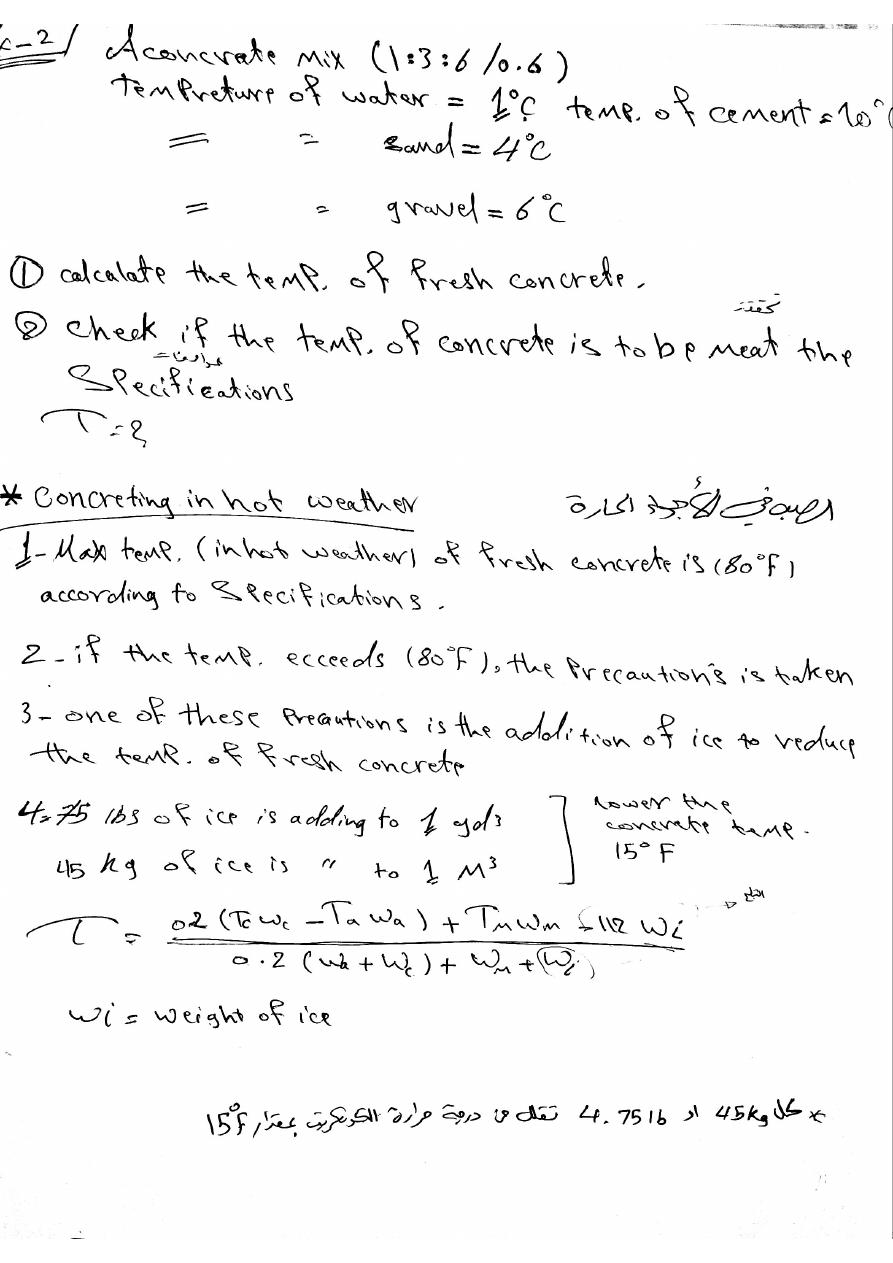 -2/ A concrate mix (1:3:6/0.6)
Tempreture of water = 1°C temp. of cement = 10°C
= = sand = 4°C
= = gravel = 6°C
① calcalate the temp. of fresh concrete.
② check if the temp. of concrete is to be meat the
Specifications
T = ?
* Concreting in hot weather الصب في الأجواء الحارة
1- Max temp. (in hot weather) of fresh concrete is (80°F)
according to Specifications.
2- if the temp. ecceeds (80°F), the Precaution's is taken
3- one of these Precautions is the addition of ice to reduce
the temp. of fresh concrete
4- 75 lbs of ice is adding to 1 yd3 lower the
concrate temp.
45 kg of ice is " to 1 M3 15°F
T = 02 (Tc Wc - Ta Wa) + Tm Wm - 112 Wi
0.2 (Wa + Wc) + Wm + Wi
wi = weight of ice
* كل 45kg او 4.75 lb تقلل من درجة حرارة الكونكريت بمقدار 15°F